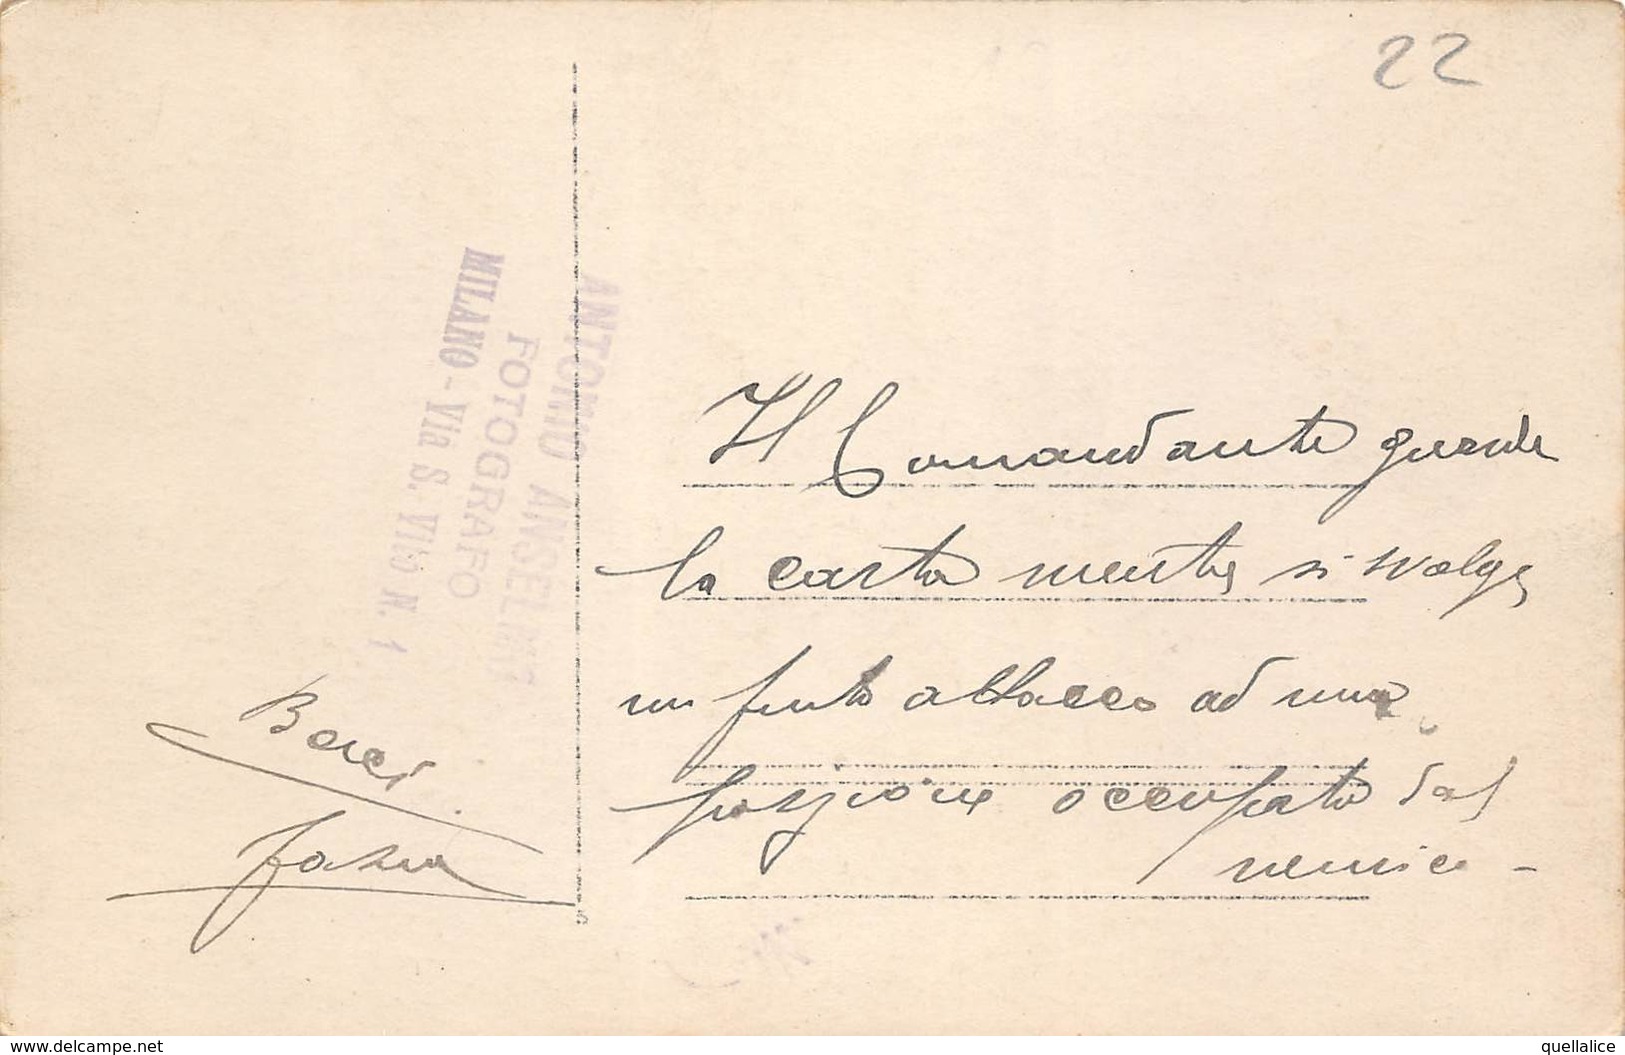 22
ANTONIO ANSELMI
FOTOGRAFO
MILANO - Via S. Vito N. 1
Il Comandante guarda
la carta mentre si svolge
un finto attacco ad una
posizione occupata dal
nemico -
www.delcampe.net
quellalice